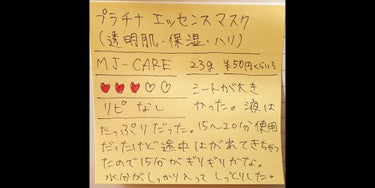 プラチナ エッセンスマスク
(透明肌・保湿・ハリ)
MJ-CARE 23g ¥50円くらい?
♥♥♥♡♡ シートが大き
リピなし かった。液は
たっぷりだった。15〜20分使用
だったけど途中はがれてきちゃ
ったので15分がぎりぎりかな。
水分がしっかり入ってしっとりした。